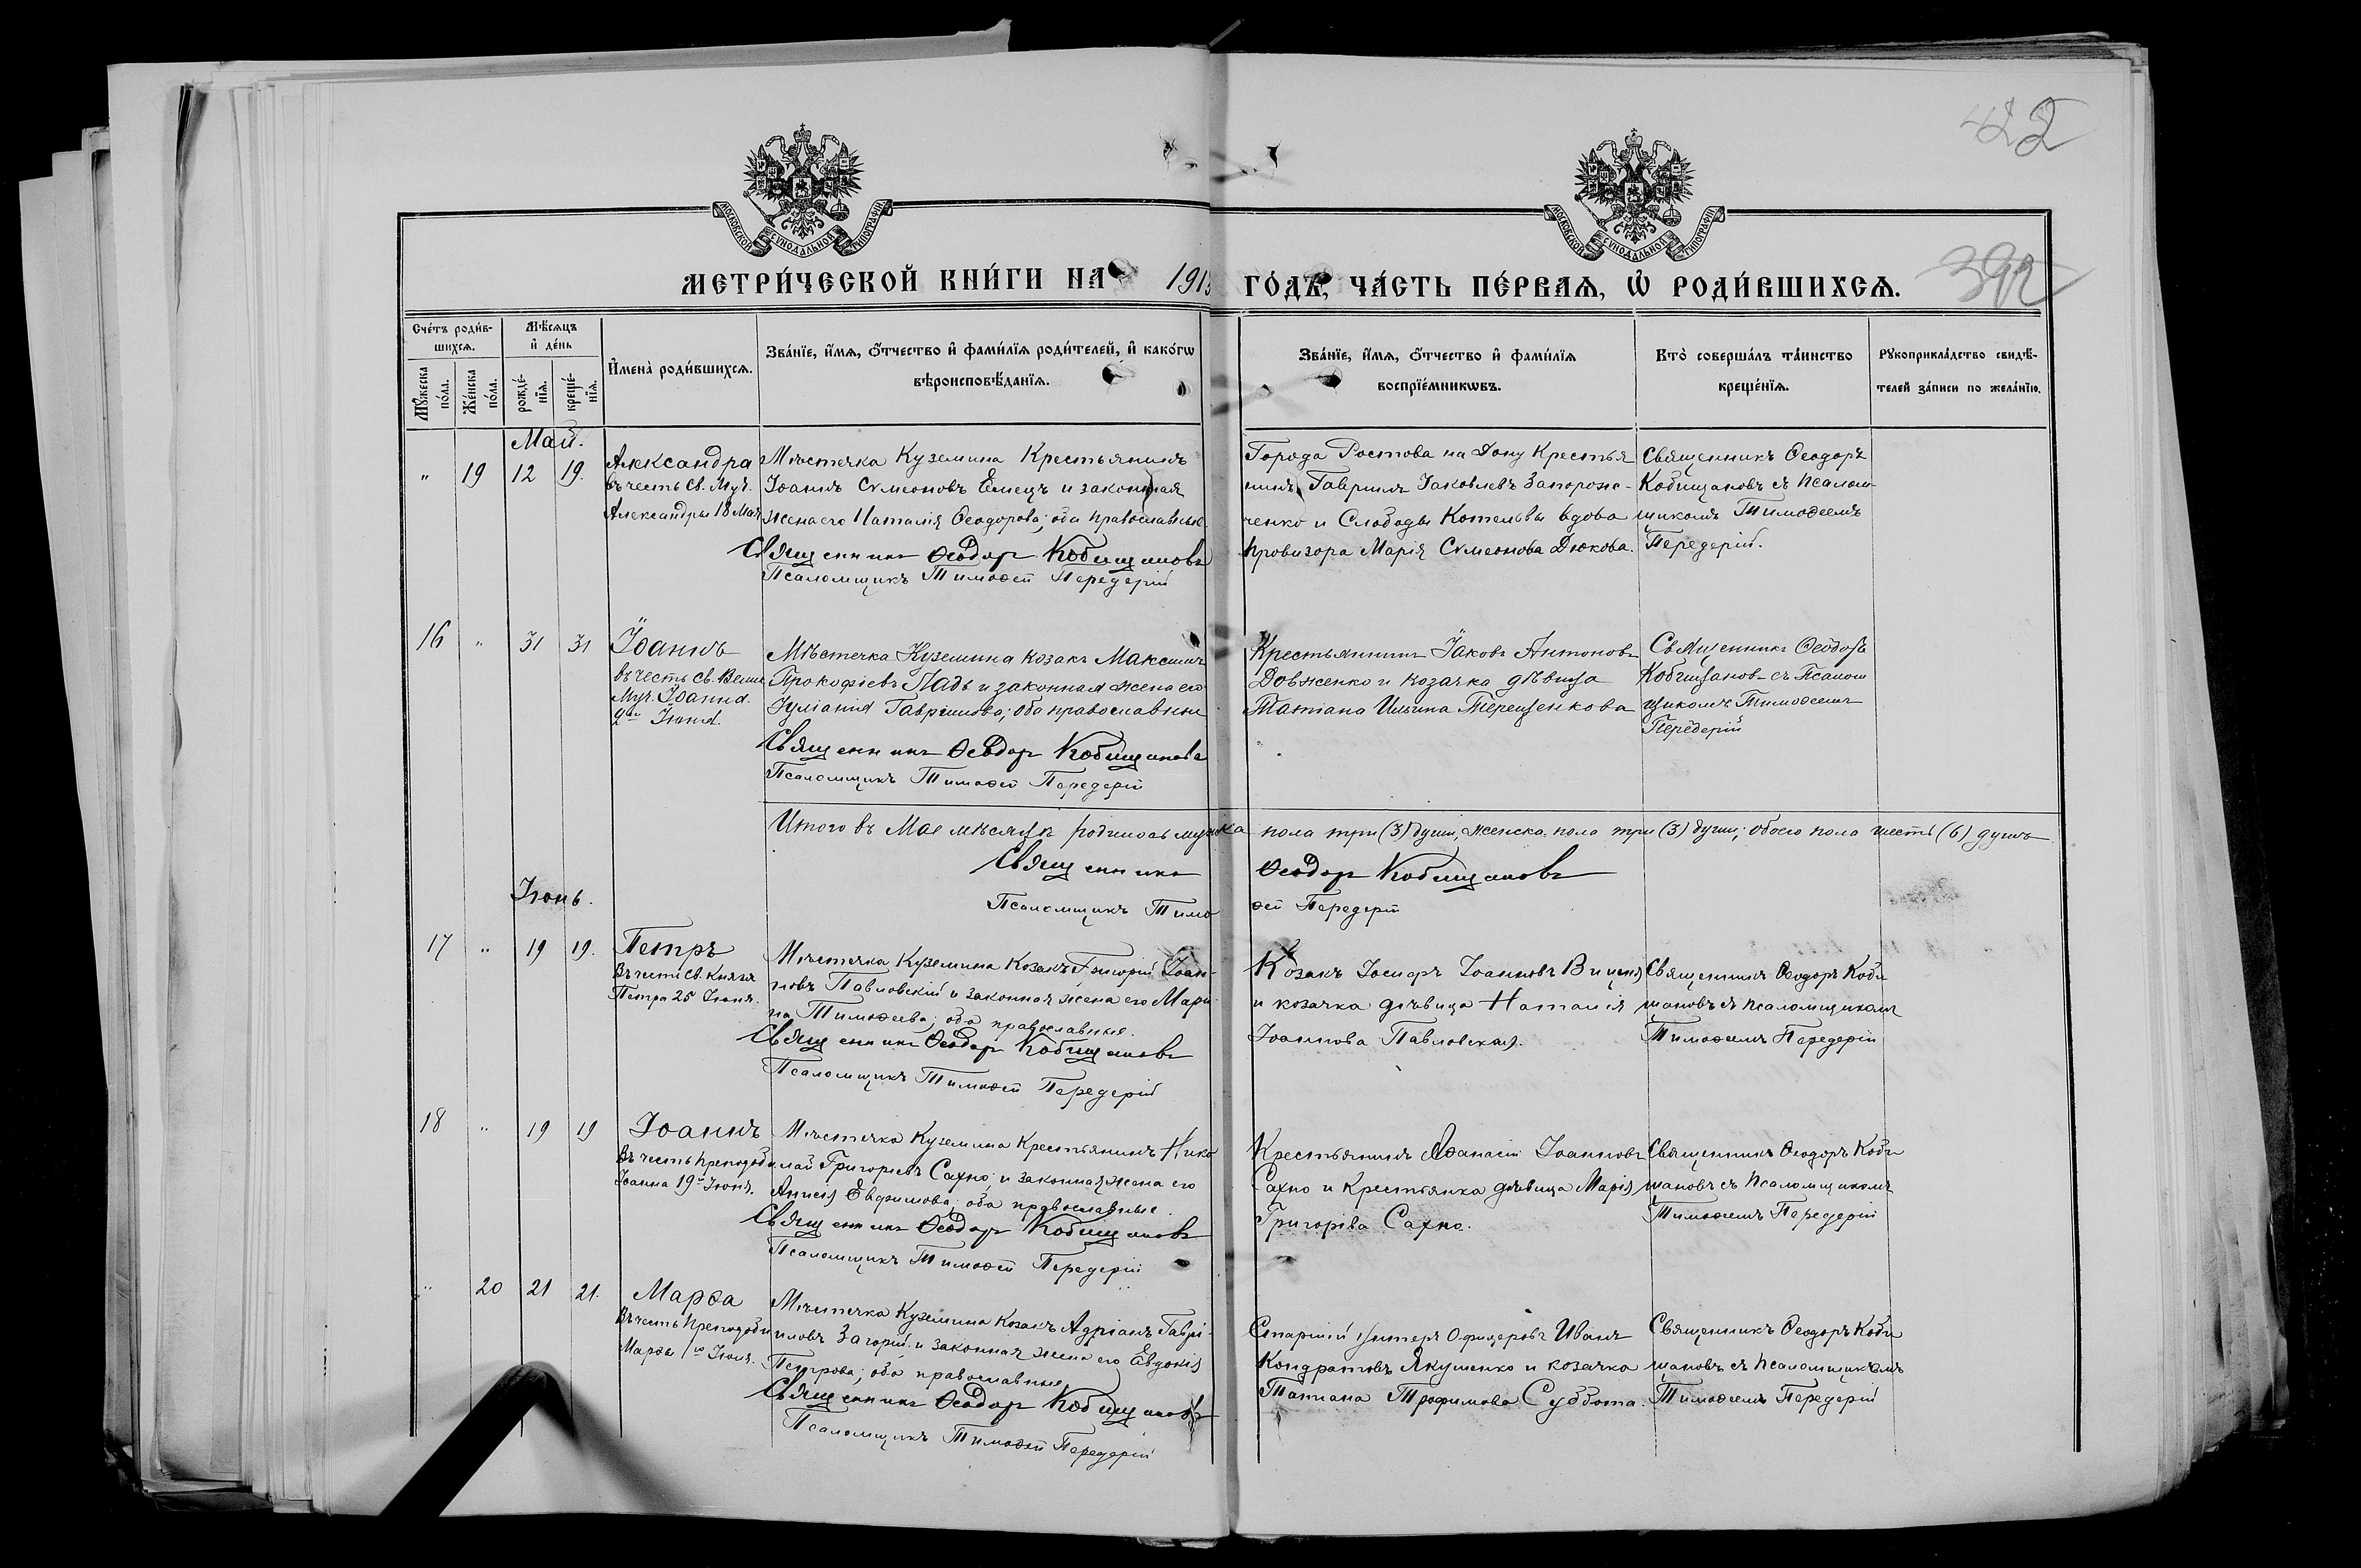 422
МОСКОВСКОЙ СѴНОДАЛЬНОЙ ТИПОГРАФІИ
МОСКОВСКОЙ СѴНОДАЛЬНОЙ ТИПОГРАФІИ
МЕТРИ́ЧЕСКОЙ КНИ́ГИ НА 1915 ГО́ДЪ, ЧА́СТЬ ПЕ́РВАЯ, Ѡ РОДИ́ВШИХСЯ.
392
Сче́тъ роди́в-
шихся.
Мѣ́сяцъ
и де́нь
Мꙋ́жеска
по́ла.
Же́нска
по́ла.
рожде́-
нїя.
креще́-
нїя.
Имена̀ роди́вшихся.
Зва́нїе, и́мя, о́тчество и фами́лїя роди́телей, и како́гѡ
вѣроисповѣ́данїя.
Зва́нїе, и́мя, о́тчество и фами́лїя
воспрїе́мникѡвъ.
Кто̀ соверша́лъ та́инство
креще́нїя.
Рꙋкоприкла́дство свидѣ́-
телей за́писи по жела́нїю.
Май.
" 19 12 19.
Александра
въ честь Св. Муч.
Александры 18 Мая
Мѣстечка Куземина Крестьянинъ
Іоаннъ Сѵмеоновъ Емецъ и законная
жена его Наталія Ѳеодорова; оба православные.
Священникъ Ѳеодоръ Кобищановъ
Псаломщикъ Тимоѳей Передерій
Города Ростова на Дону Крестья
нинъ Гавріилъ Іаковлевъ Запорож-
ченко и Слободы Котельвы вдова
провизора Марія Сѵмеонова Дюкова.
Священникъ Ѳеодоръ
Кобищановъ съ Псалом-
щикомъ Тимоѳеемъ
Передерій.
16 " 31 31
Іоаннъ
въ честь Св. Велик
Муч. Іоанна
2го Іюня.
Мѣстечка Куземина козакъ Максимъ
Прокофіевъ Падъ и законная жена его
Іуліанія Гавріилова; оба православные
Священникъ Ѳеодоръ Кобищановъ
Псаломщикъ Тимоѳей Передерій
Крестьянинъ Іаковъ Антоновъ
Довженко и козачка дѣвица
Татіана Ильина Терещенкова
Священникъ Ѳеодоръ
Кобищановъ съ Псалом
щикомъ Тимоѳеемъ
Передерій
Итого въ Маѣ мѣсяцѣ родилось мужска пола три (3) души, женска пола три (3) души; обоего пола шесть (6) душъ
Священникъ Ѳеодоръ Кобищановъ
Псаломщикъ Тимоѳей Передерій
Іюнь.
17 " 19 19.
Петръ
Въ честь Св. Князя
Петра 25 Іюня.
Мѣстечка Куземина Козакъ Григорій Іоан-
новъ Павловскій и законная жена его Мари
на Тимоѳеева; оба православные.
Священникъ Ѳеодоръ Кобищановъ
Псаломщикъ Тимоѳей Передерій
Козакъ Іосифъ Іоанновъ
и козачка дѣвица Наталія
Іоаннова Павловская.
Священникъ Ѳеодоръ Коби
щановъ съ псаломщикомъ
Тимоѳеемъ Передерій
18 " 19 19
Іоаннъ
Въ честь Преподобн
Іоанна 19го Іюня.
Мѣстечка Куземина Крестьянинъ Нико
лай Григорьевъ Сахно, и законная жена его
Анисія Евфимова; оба православные.
Священникъ Ѳеодоръ Кобищановъ
Псаломщикъ Тимоѳей Передерій
Крестьянинъ Аѳанасій Іоанновъ
Сахно и Крестьянка дѣвица Марія
Григоріева Сахно.
Священникъ Ѳеодоръ Коби
щановъ съ Псаломщикомъ
Тимоѳеемъ Передерій
" 20 21 21.
Марѳа
Въ честь Преподобн
Марѳы 1го Іюля.
Мѣстечка Куземина Козакъ Адріанъ Гаврі-
иловъ Загорій и законная жена его Евдокія
Петрова; оба православные
Священникъ Ѳеодоръ Кобищановъ
Псаломщикъ Тимоѳей Передерій
Старшій Унтеръ Офицеръ Иванъ
Кондратовъ Якушенко и козачка
Татіана Трофимова Суббота.
Священникъ Ѳеодоръ Коби
щановъ съ псаломщикомъ
Тимоѳеемъ Передерій